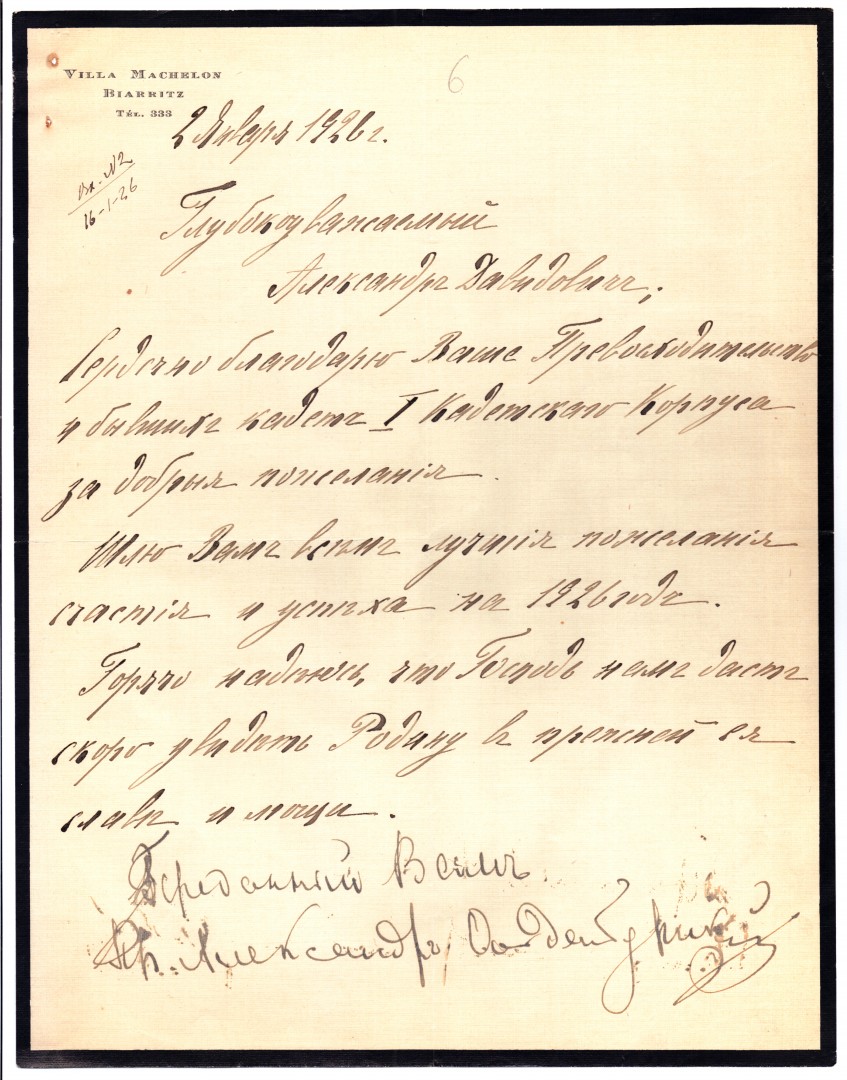 VILLA MACHELON
BIARRITZ
TÉL. 333
6
2 Января 1926 г.
Вх. N2
16-1-26
Глубокоуважаемый
Александръ Давидовичъ,
Сердечно благодарю Ваше Превосходительство
и бывшихъ кадетъ I Кадетскаго Корпуса
за добрыя пожеланія.
Шлю Вамъ всѣмъ лучшія пожеланія
счастія и успѣха на 1926 годъ.
Горячо надѣюсь, что Господь намъ дастъ
скоро увидѣть Родину въ прежней ея
славѣ и мощи.
Преданный Вамъ
Пр. Александръ Ольденбургскій